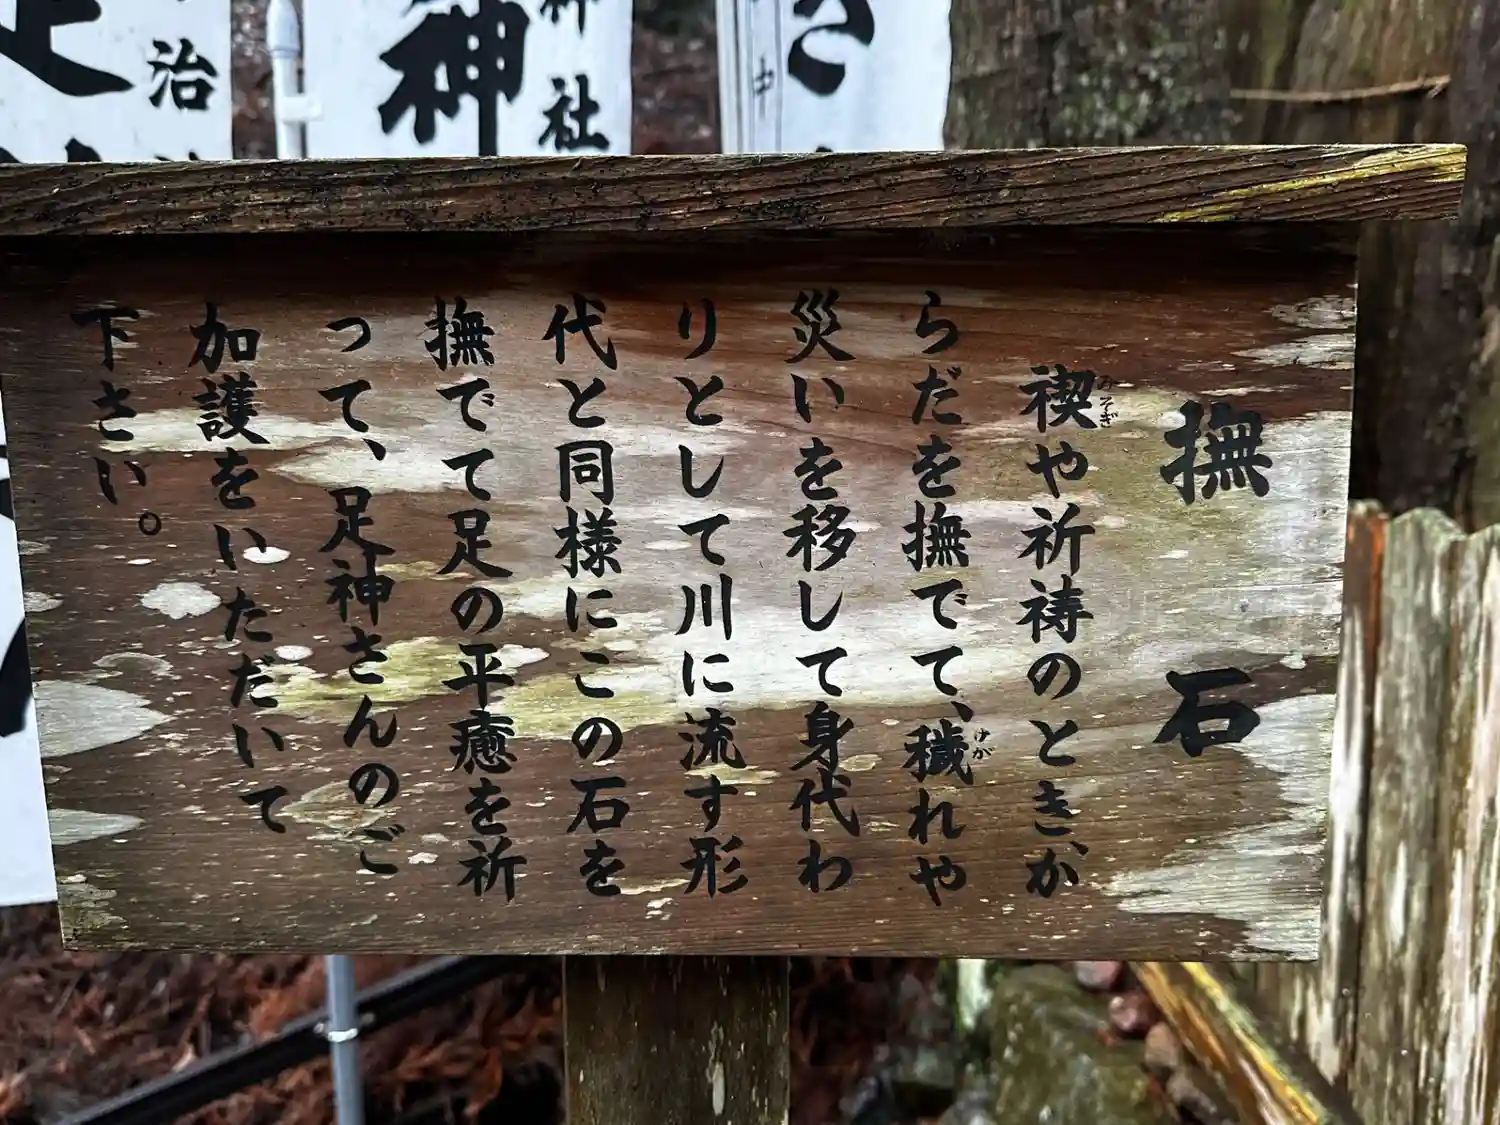 撫石
禊や祈祷のときか
みそぎ
らだを撫でて、穢れや
けが
災いを移して身代わ
りとして川に流す形
代と同様にこの石を
撫でて足の平癒を祈
って、足神さんのご
加護をいただいて
下さい。
さ
中
神社
神
治
足